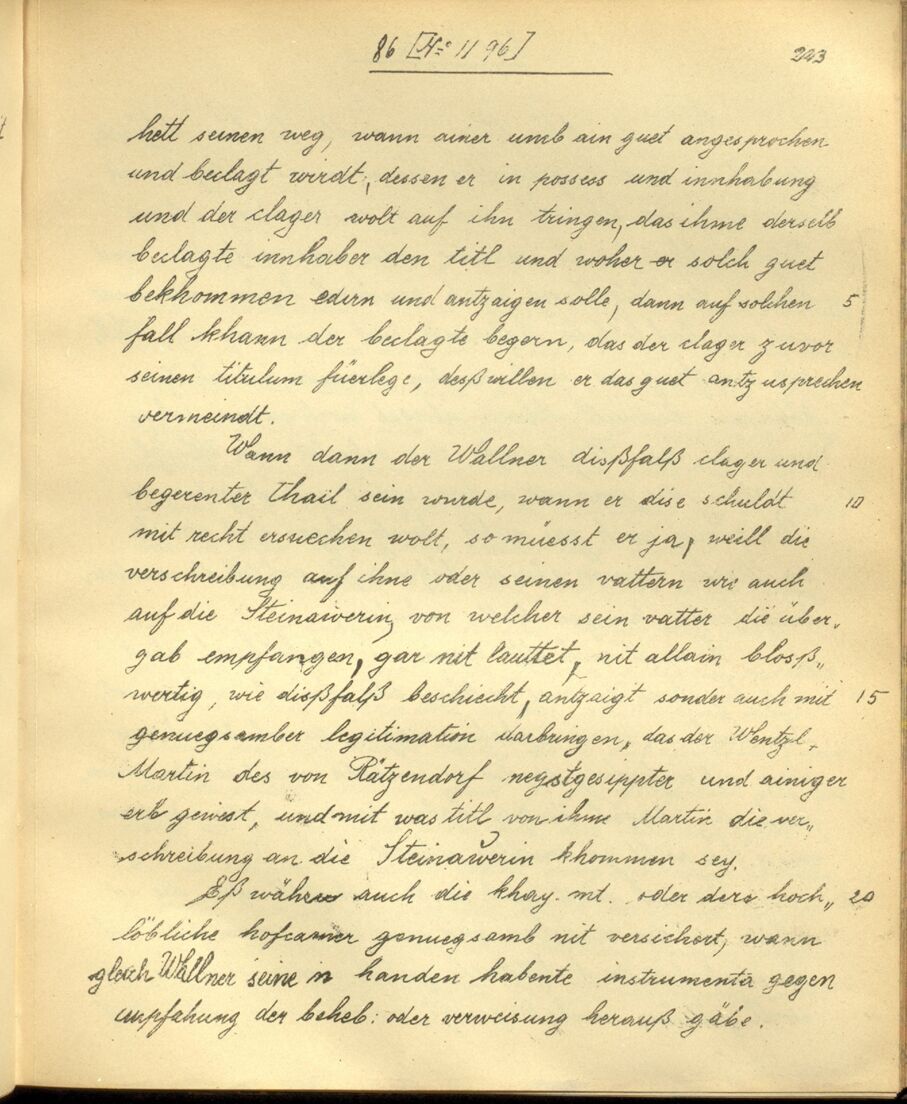 86 [No 1196]
223
hett seinen weg, wann ainer umb ain guet angesprochen
und beclagt wirdt, dessen er in possess und innhabung
und der clager wolt auf ihn tringen, das ihme derselb
beclagte innhaber den titl und woher er solch guet
bekhommen edirn und antzaigen solle, dann auf solchen 5
fall khann der beclagte begern, das der clager zuvor
seinen titulum füerlege, deßwillen er das guet antzusprechen
vermeindt.
Wann dann der Wallner dißfalß clager und
begerenter thail sein wurde, wann er dise schuldt 10
mit recht ersuechen wolt, so müesst er ja, weill die
verschreibung auf ihne oder seinen vattern wie auch
auf die Steinawerin, von welcher sein vatter die über-
gab empfangen, gar nit lauttet, nit allain bloß„
wertig, wie dißfalß beschiecht, antzaigt sonder auch mit 15
genuegsamber legitimation darbringen, das der Wentzl
Martin des von Rätzendorf negstgesippter und ainiger
erb gewest, und mit was titl von ihme Martin die ver„
schreibung an die Steinawerin khommen sey.
Eß währe auch die khay. mt. oder dero hoch„ 20
löbliche hofcamer genuegsamb nit versichert, wann
gleich Wallner seine in handen habente instrumenta gegen
empfahung der beheb: oder verweisung herauß gäbe.